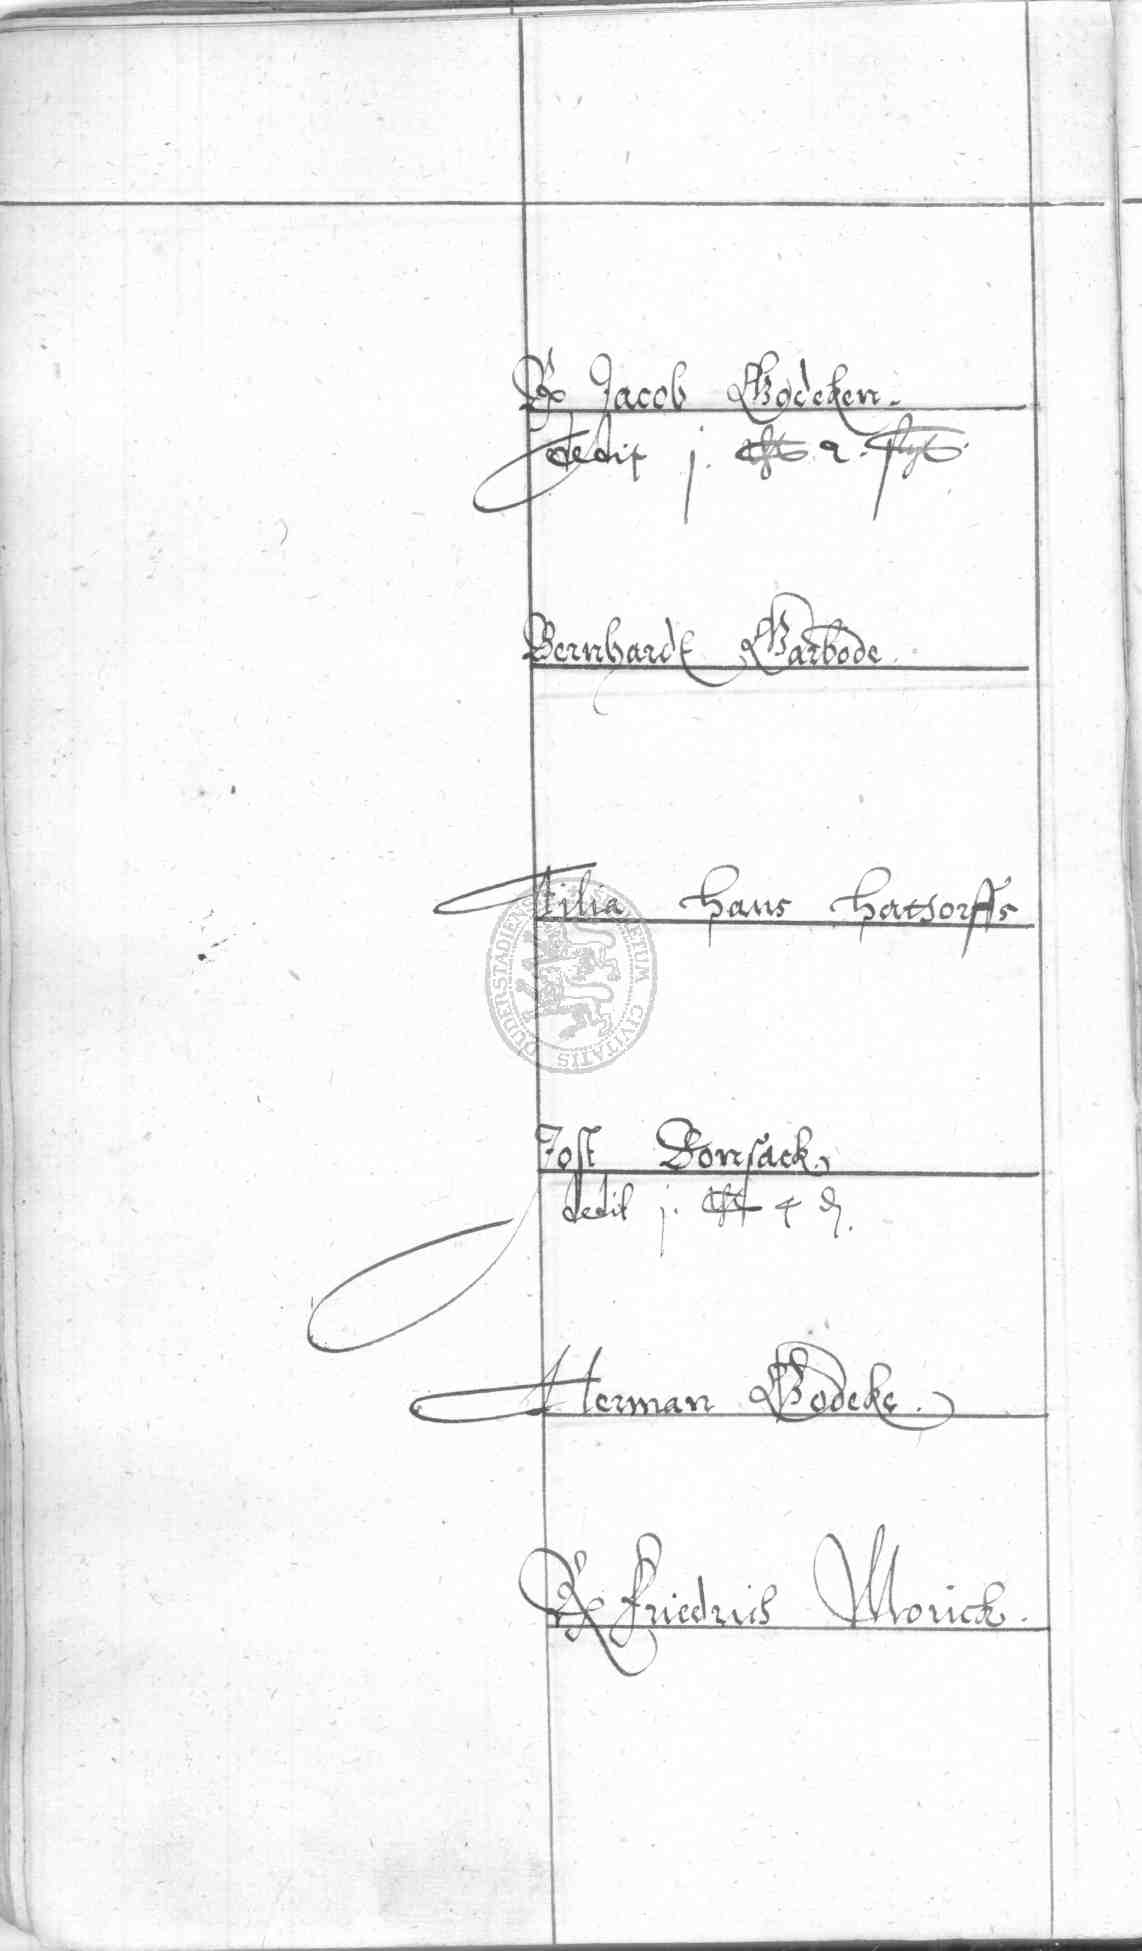 Jacob Godeken.
dedit j.
Bernhardt Garbode.
Filia Hans Hatdorffs
Jost Donsack
dedit j. 4 d.
Herman Godeke.
Friedrich Morick.
SECRETUM CIVITATIS DUDERSTADIENSIS